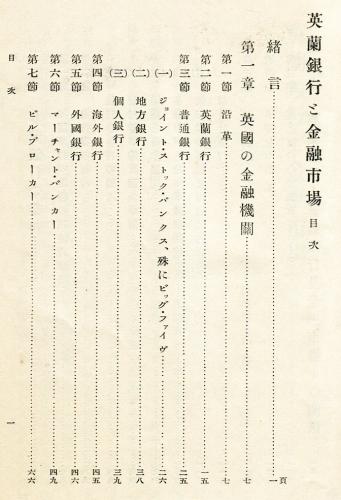 英蘭銀行と金融市場 目次
緒言……一頁
第一章 英國の金融機關……七
第一節 沿革……七
第二節 英蘭銀行……一五
第三節 普通銀行……二五
(一) ジョイント・ストック・バンクス、殊にビッグ・ファイヴ……二六
(二) 地方銀行……三八
(三) 個人銀行……三九
第四節 海外銀行……四五
第五節 外國銀行……四六
第六節 マーチャント・バンカー……四九
第七節 ビル・ブローカー……六六
目次
一